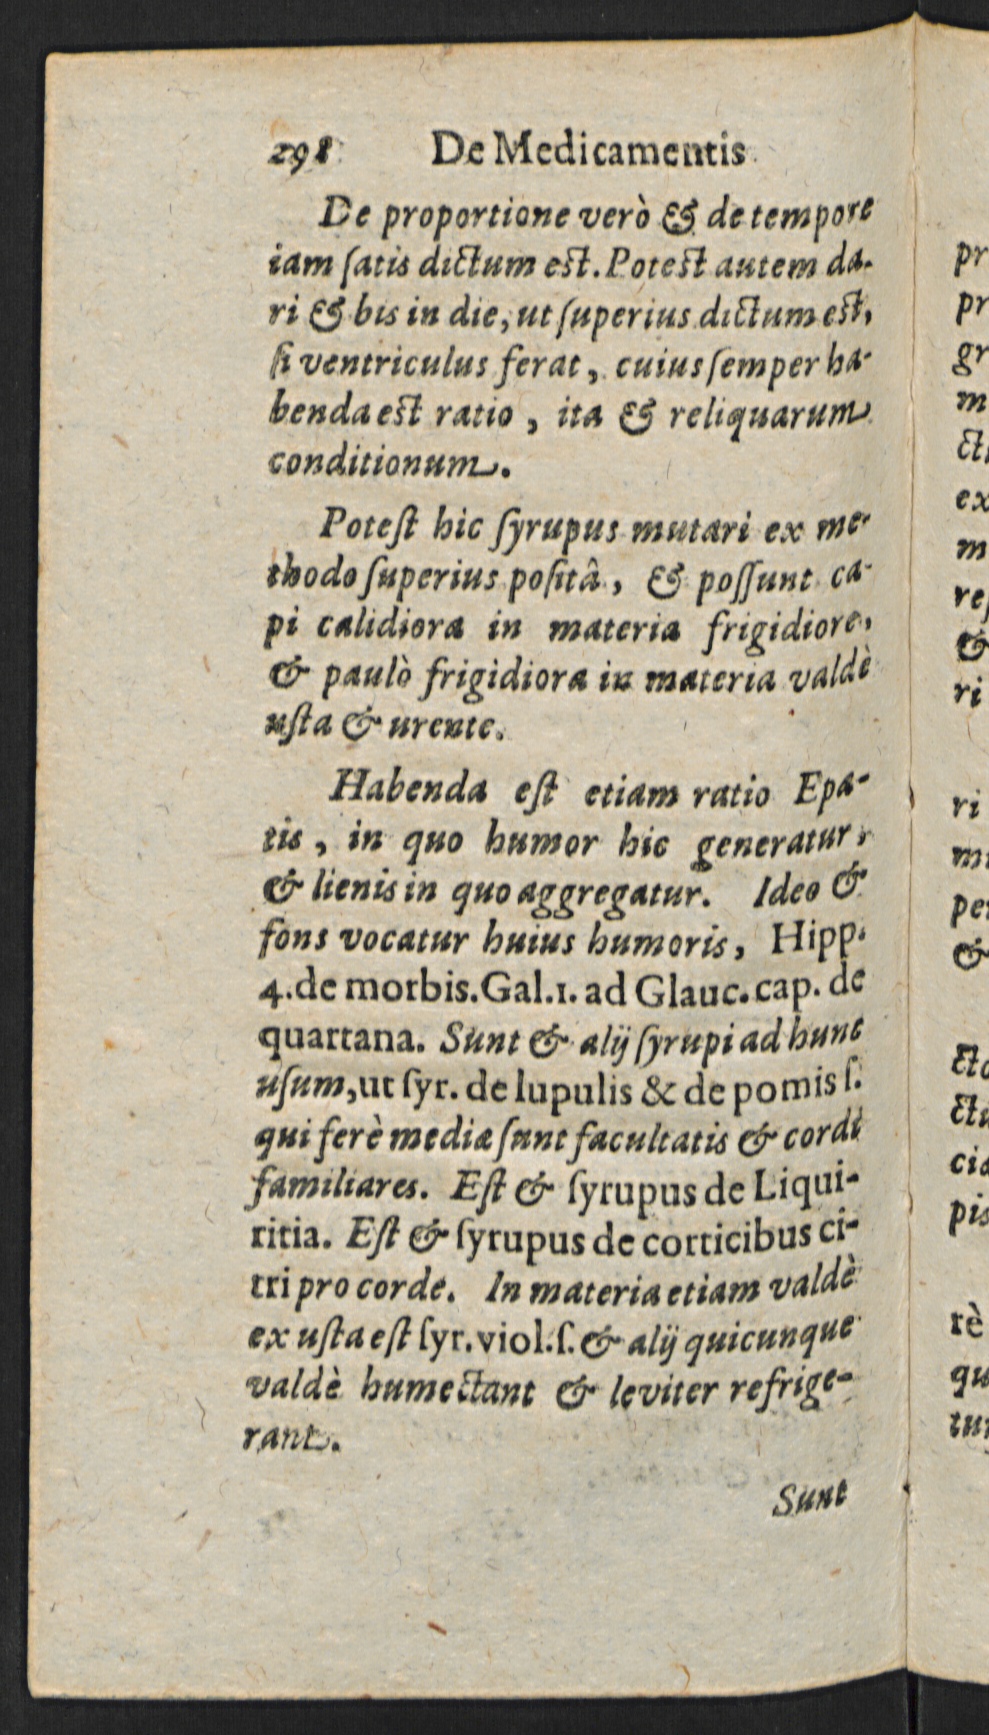 298 De Medicamentis
De proportione verò & de tempore
iam ſatis dictum est. Potest autem da-
ri & bis in die, ut ſuperius dictum est,
ſi ventriculus ferat, cuius ſemper ha-
benda est ratio, ita & reliquarum
conditionum.
Poteſt hic ſyrupus mutari ex me-
thodo ſuperius poſitâ, & poſſunt ca-
pi calidiora in materia frigidiore,
& paulò frigidiora in materia valdè
uſta & urente.
Habenda eſt etiam ratio Epa-
tis, in quo humor hic generatur,
& lienis in quo aggregatur. Ideo &
fons vocatur huius humoris, Hipp.
4. de morbis. Gal. 1. ad Glauc. cap. de
quartana. Sunt & alij ſyrupi ad hunc
uſum, ut ſyr. de lupulis & de pomis ſ.
qui ferè mediæ ſunt facultatis & cordi
familiares. Eſt & ſyrupus de Liqui-
ritia. Eſt & ſyrupus de corticibus ci-
tri pro corde. In materia etiam valdè
ex uſta eſt ſyr. viol. ſ. & alij quicunque
valdè humectant & leviter refrige-
rant.
Sunt
pr
pr
gr
m
ct
ex
m
reſ
&
ri
ri
m
pe
&
cto
ctu
cia
pis
rè
qu
tur